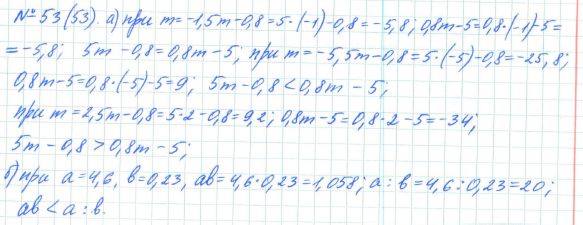 № 53 (53). а) при m = -1, 5m - 0,8 = 5 · (-1) - 0,8 = -5,8; 0,8m - 5 = 0,8 · (-1) - 5 =
= -5,8; 5m - 0,8 = 0,8m - 5; при m = -5, 5m - 0,8 = 5 · (-5) - 0,8 = -25,8;
0,8m - 5 = 0,8 · (-5) - 5 = 9; 5m - 0,8 < 0,8m - 5;
при m = 2, 5m - 0,8 = 5 · 2 - 0,8 = 9,2; 0,8m - 5 = 0,8 · 2 - 5 = -34;
5m - 0,8 > 0,8m - 5;
б) при a = 4,6, в = 0,23, aв = 4,6 · 0,23 = 1,058; a : в = 4,6 : 0,23 = 20;
aв < a : в.